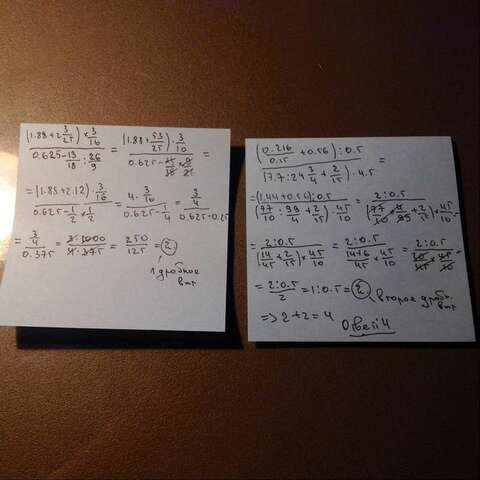 (1.88+2 3/25)×3/16 / 0.625-13/18:26/9 = (1.88+53/25)·3/10 / 0.625- =
=(1.88+2.12)·3/16 / 0.625-1/2×1/2 = 4·3/16 / 0.625-1/4 = 3/4 / 0.625-0.25
= 3/4 / 0.375 = 3·1000 / 4·375 = 250/125 = 2
1 дробное
(0.216/0.15 +0.56):0.5 / (7.7:24 3/4+2/15)·4.5 =
=(1.44+0.56):0.5 / (77/10:99/4+2/15)·45/10 = 2:0.5
= 2:0.5 / (14/45+2/15)×45/10 = 2:0.5 / 14+6/45×45/10 = 2:0.5
= 2:0.5 / 2 =1:0.5= 2 второе дробн.
=>2+2=4
Ответ 4